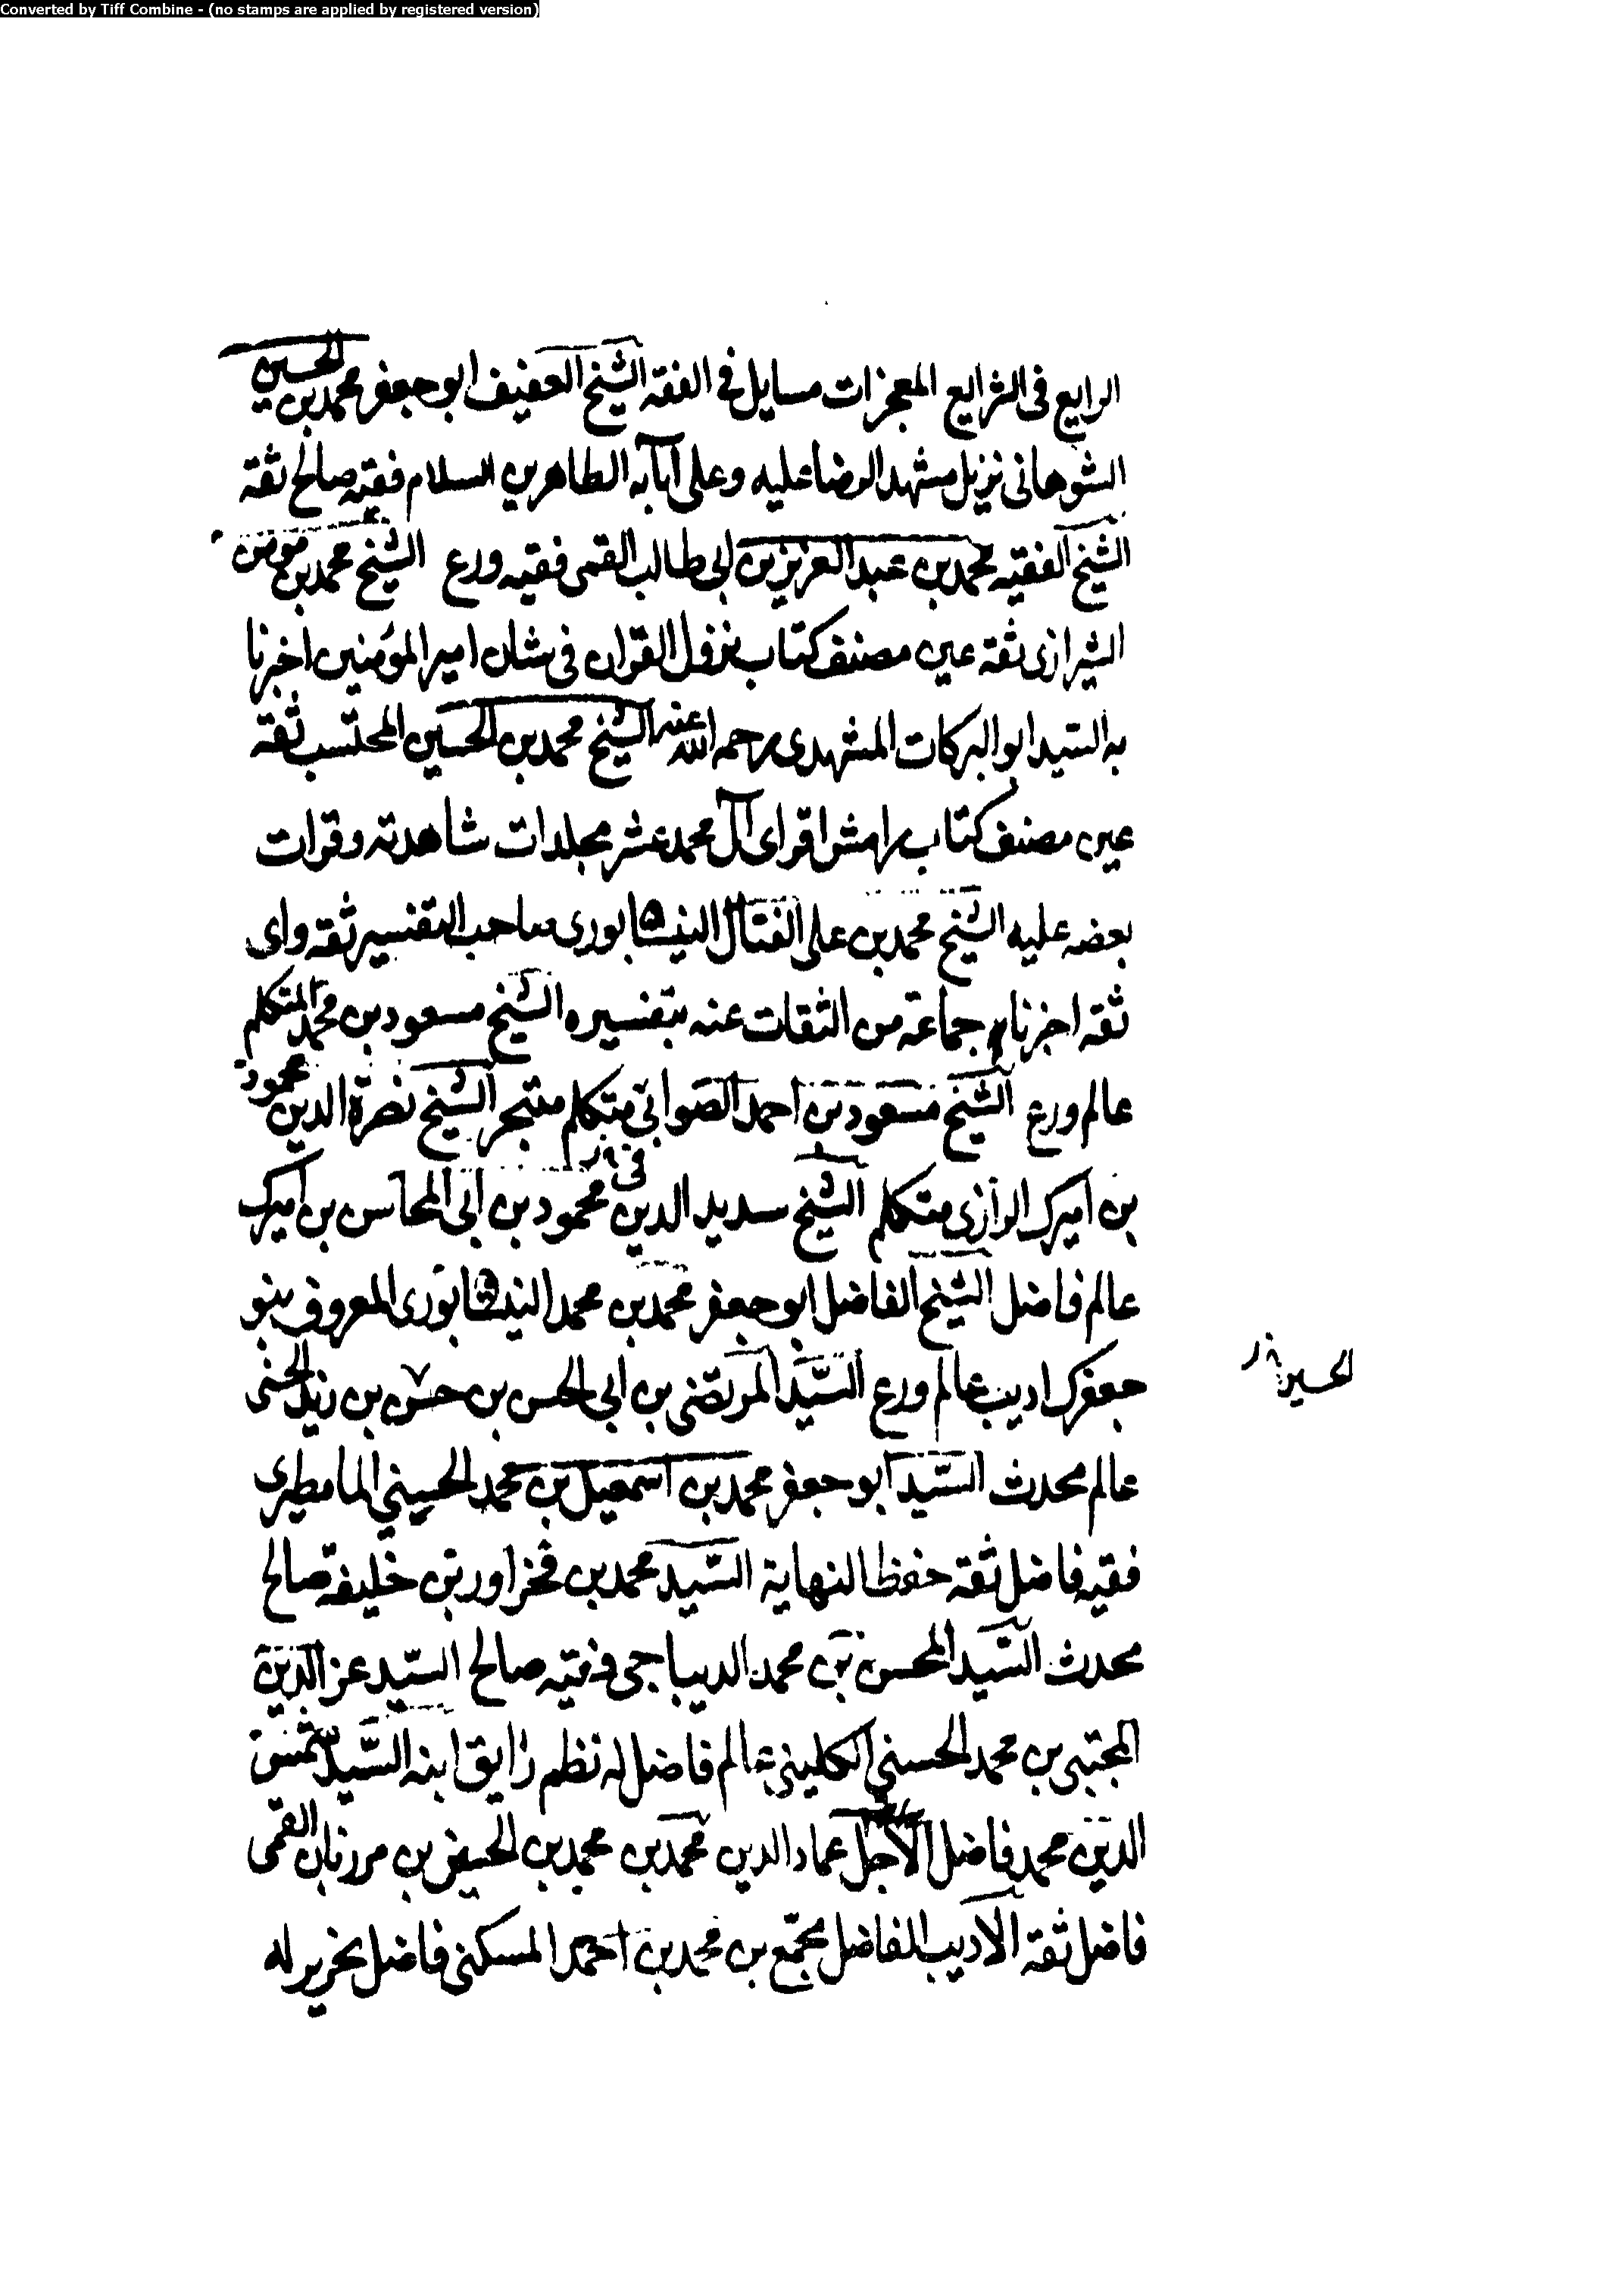 Converted by Tiff Combine - (no stamps are applied by registered version)
الرايع فى الشرايع المعجزات مسايل فى الفقه الشيخ العفيف ابو جعفر محمد بن الحسين
الشوهانى نزيل مشهد الرضا عليه وعلى آبآيه الطاهرين السلام فقيه صالح ثقة
الشيخ الفقيه محمد بن عبد العزيز بن ابى طالب القمى فقيه ورع الشيخ محمد بن مومن
الشيرازى ثقة عين مصنف كتاب نزول القران فى شان امير المؤمنين اخبرنا
به السيد ابو البركات المشهدى رحمه الله عنه الشيخ محمد بن الحسين المحتسب ثقة
عين مصنف كتاب رامش اقراى آل محمد عشر مجلدات شاهدته وقرات
بعضه عليه الشيخ محمد بن على الفتال النيشابورى صاحب التفسير ثقة واى
ثقة اخبرنا جماعة من الثقات عنه بتفسيره الشيخ مسعود بن محمد المتكلم
عالم ورع الشيخ مسعود بن احمد الصوابى متكلم متبحر الشيخ نصرة الدين محمود
بن اميرك الرازى متكلم الشيخ سديد الدين محمود بن ابى المحاسن بن اميرك
عالم فاضل الشيخ الفاضل ابو جعفر محمد بن محمد النيشابورى المعروف ببو
جعفرك اديب عالم ورع السيد المرتضى بن ابى الحسن بن حسن بن زيد الحسنى
الحسين
عالم محدث السيد ابو جعفر محمد بن اسمعيل بن محمد الحسينى المامطيرى
فقيه فاضل ثقة حفظ النهاية السيد محمد بن فخراور بن خليفة صالح
محدث السيد المحسن بن محمد الديباجى فقيه صالح السيد عز الدين
المجتبى بن محمد الحسنى الكلينى عالم فاضل له نظم رايق ابنه السيد شمس
الدين محمد فاضل الاجل عماد الدين محمد بن محمد بن الحسين بن مرزبان القمى
فاضل ثقة الاديب الفاضل مجمع بن محمد بن احمد المسكنى فاضل نحرير له